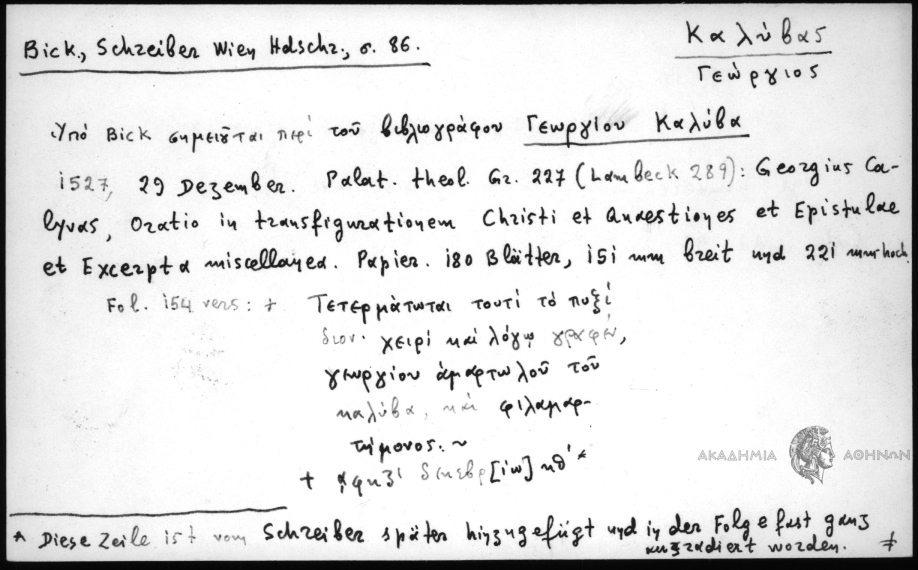 Bick, Schreiber Wien Hdschr., σ. 86.
Καλύβας
Γεώργιος
Ὑπό Bick σημειοῦται περί τοῦ βιβλιογράφου Γεωργίου Καλύβα
1527, 29 Dezember. Palat. theol. Gr. 227 (Lambeck 289): Georgius Ca-
lyvas, Oratio in transfigurationem Christi et Quaestiones et Epistulae
et Excerpta miscellanea. Papier. 180 Blätter, 151 mm breit und 221 mm hoch.
Fol. 154 vers: + Τετερμάτωται τουτί τό πυξί
διον· χειρί καί λόγῳ γραφέν,
γεωργίου ἁμαρτωλοῦ τοῦ
καλύβα, καί φιλαμαρ-
τήμονος: ~
+ ͵αφκζʹ δικεβρ[ίω] κθʹ *
ΑΚΑΔΗΜΙΑ ΑΘΗΝΩΝ
* Diese Zeile ist vom Schreiber später hinzugefügt und in der Folge fast ganz
ausradiert worden. +